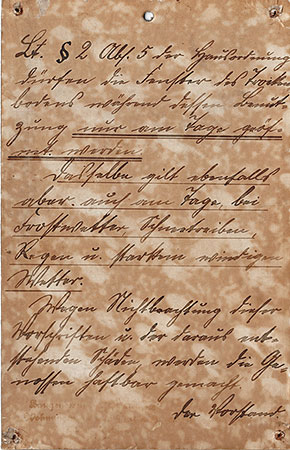 Lt. § 2 Abs. 5 der Hausordnung
dürfen die Fenster des Trocken-
bodens während dessen Benut-
zung nur am Tage geöff-
net werden.
Dasselbe gilt ebenfalls
aber auch am Tage, bei
Frostwetter, Schneetreiben,
Regen u. starkem windigen
Wetter.
Wegen Nichtbeachtung dieser
Vorschriften u. der daraus ent-
stehenden Schäden, werden die Ge-
nossen haftbar gemacht.
Der Vorstand.